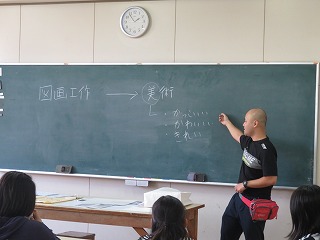 図画工作 → 美術
・かっこいい
・かわいい
・きれい